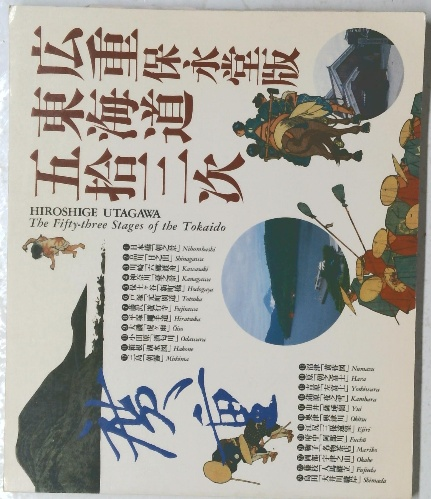 広重 保永堂版
東海道
五拾三次
HIROSHIGE UTAGAWA
The Fifty-three Stages of the Tokaido
日本橋「朝之景」 Nihombashi
品川「日之出」 Shinagawa
川崎「六郷渡舟」 Kawasaki
神奈川「台之景」 Kanagawa
保土ケ谷「新町橋」 Hodogaya
戸塚「元町別道」 Totsuka
藤沢「遊行寺」 Fujisawa
平塚「縄手道」 Hiratsuka
大磯「虎ケ雨」 Oiso
小田原「酒匂川」 Odawara
箱根「湖水図」 Hakone
三島「朝霧」 Mishima
沼津「黄昏図」 Numazu
原「朝之富士」 Hara
吉原「左富士」 Yoshiwara
蒲原「夜之雪」 Kambara
由井「薩埵嶺」 Yui
興津「興津川」 Okitsu
江尻「三保遠望」 Ejiri
府中「安部川」 Fuchū
鞠子「名物茶店」 Mariko
岡部「宇津之山」 Okabe
藤枝「人馬継立」 Fujieda
島田「大井川駿岸」 Shimada